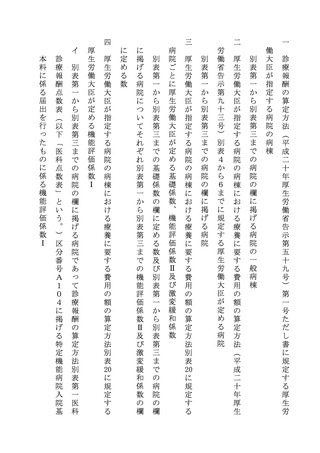 一　診療報酬の算定方法（平成二十年厚生労働省告示第五十九号）第一号ただし書に規定する厚生労
働大臣が指定する病院の病棟
別表第一から別表第三までの病院の欄に掲げる病院の一般病棟
二　厚生労働大臣が指定する病院の病棟における療養に要する費用の額の算定方法（平成二十年厚生
労働省告示第九十三号）別表４から６までに規定する厚生労働大臣が定める病院
別表第一から別表第三までの病院の欄に掲げる病院
三　厚生労働大臣が指定する病院の病棟における療養に要する費用の額の算定方法別表20に規定する
病院ごとに厚生労働大臣が定める基礎係数、機能評価係数Ⅱ及び激変緩和係数
別表第一から別表第三までの基礎係数の欄に定める数及び別表第一から別表第三までの病院の欄
に掲げる病院についてそれぞれ別表第一から別表第三までの機能評価係数Ⅱ及び激変緩和係数の欄
に定める数
四　厚生労働大臣が指定する病院の病棟における療養に要する費用の額の算定方法別表20に規定する
厚生労働大臣が定める機能評価係数Ⅰ
イ　別表第一から別表第三までの病院の欄に掲げる病院であって診療報酬の算定方法別表第一医科
診療報酬点数表（以下「医科点数表」という。）区分番号Ａ１０４に掲げる特定機能病院入院基
本料に係る届出を行ったものに係る機能評価係数Ⅰ